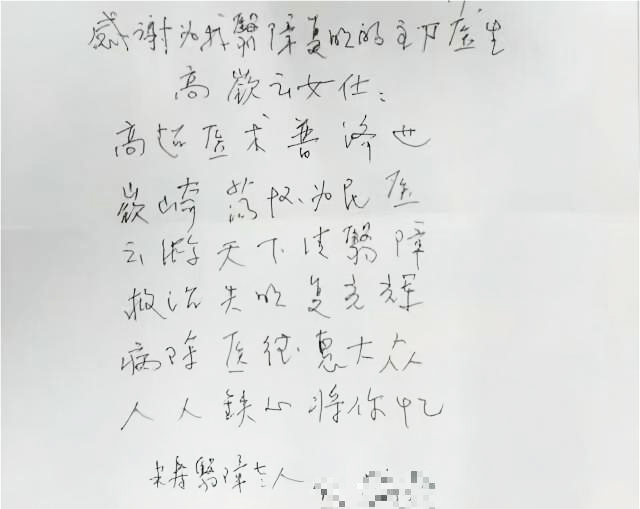 感谢为我翳障复明的主刀医生
高嵚云女仕:
高超医术普济世
嵚崎 为民医
云游天下清翳障
救治失明复光辉
病除医德惠大众
人人铁心将你忆
患翳障老人